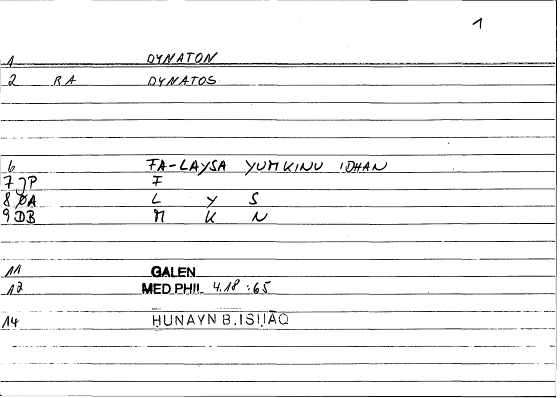 1
1 DYNATON
2 RA DYNATOS
6 FA-LAYSA YUMKINU IDHAN
7 JP F
8 ØA L Y S
9 DB M K N
11 GALEN
12 MED PHIL 4.18 :65
14 ḤUNAYN B. ISḤĀQ